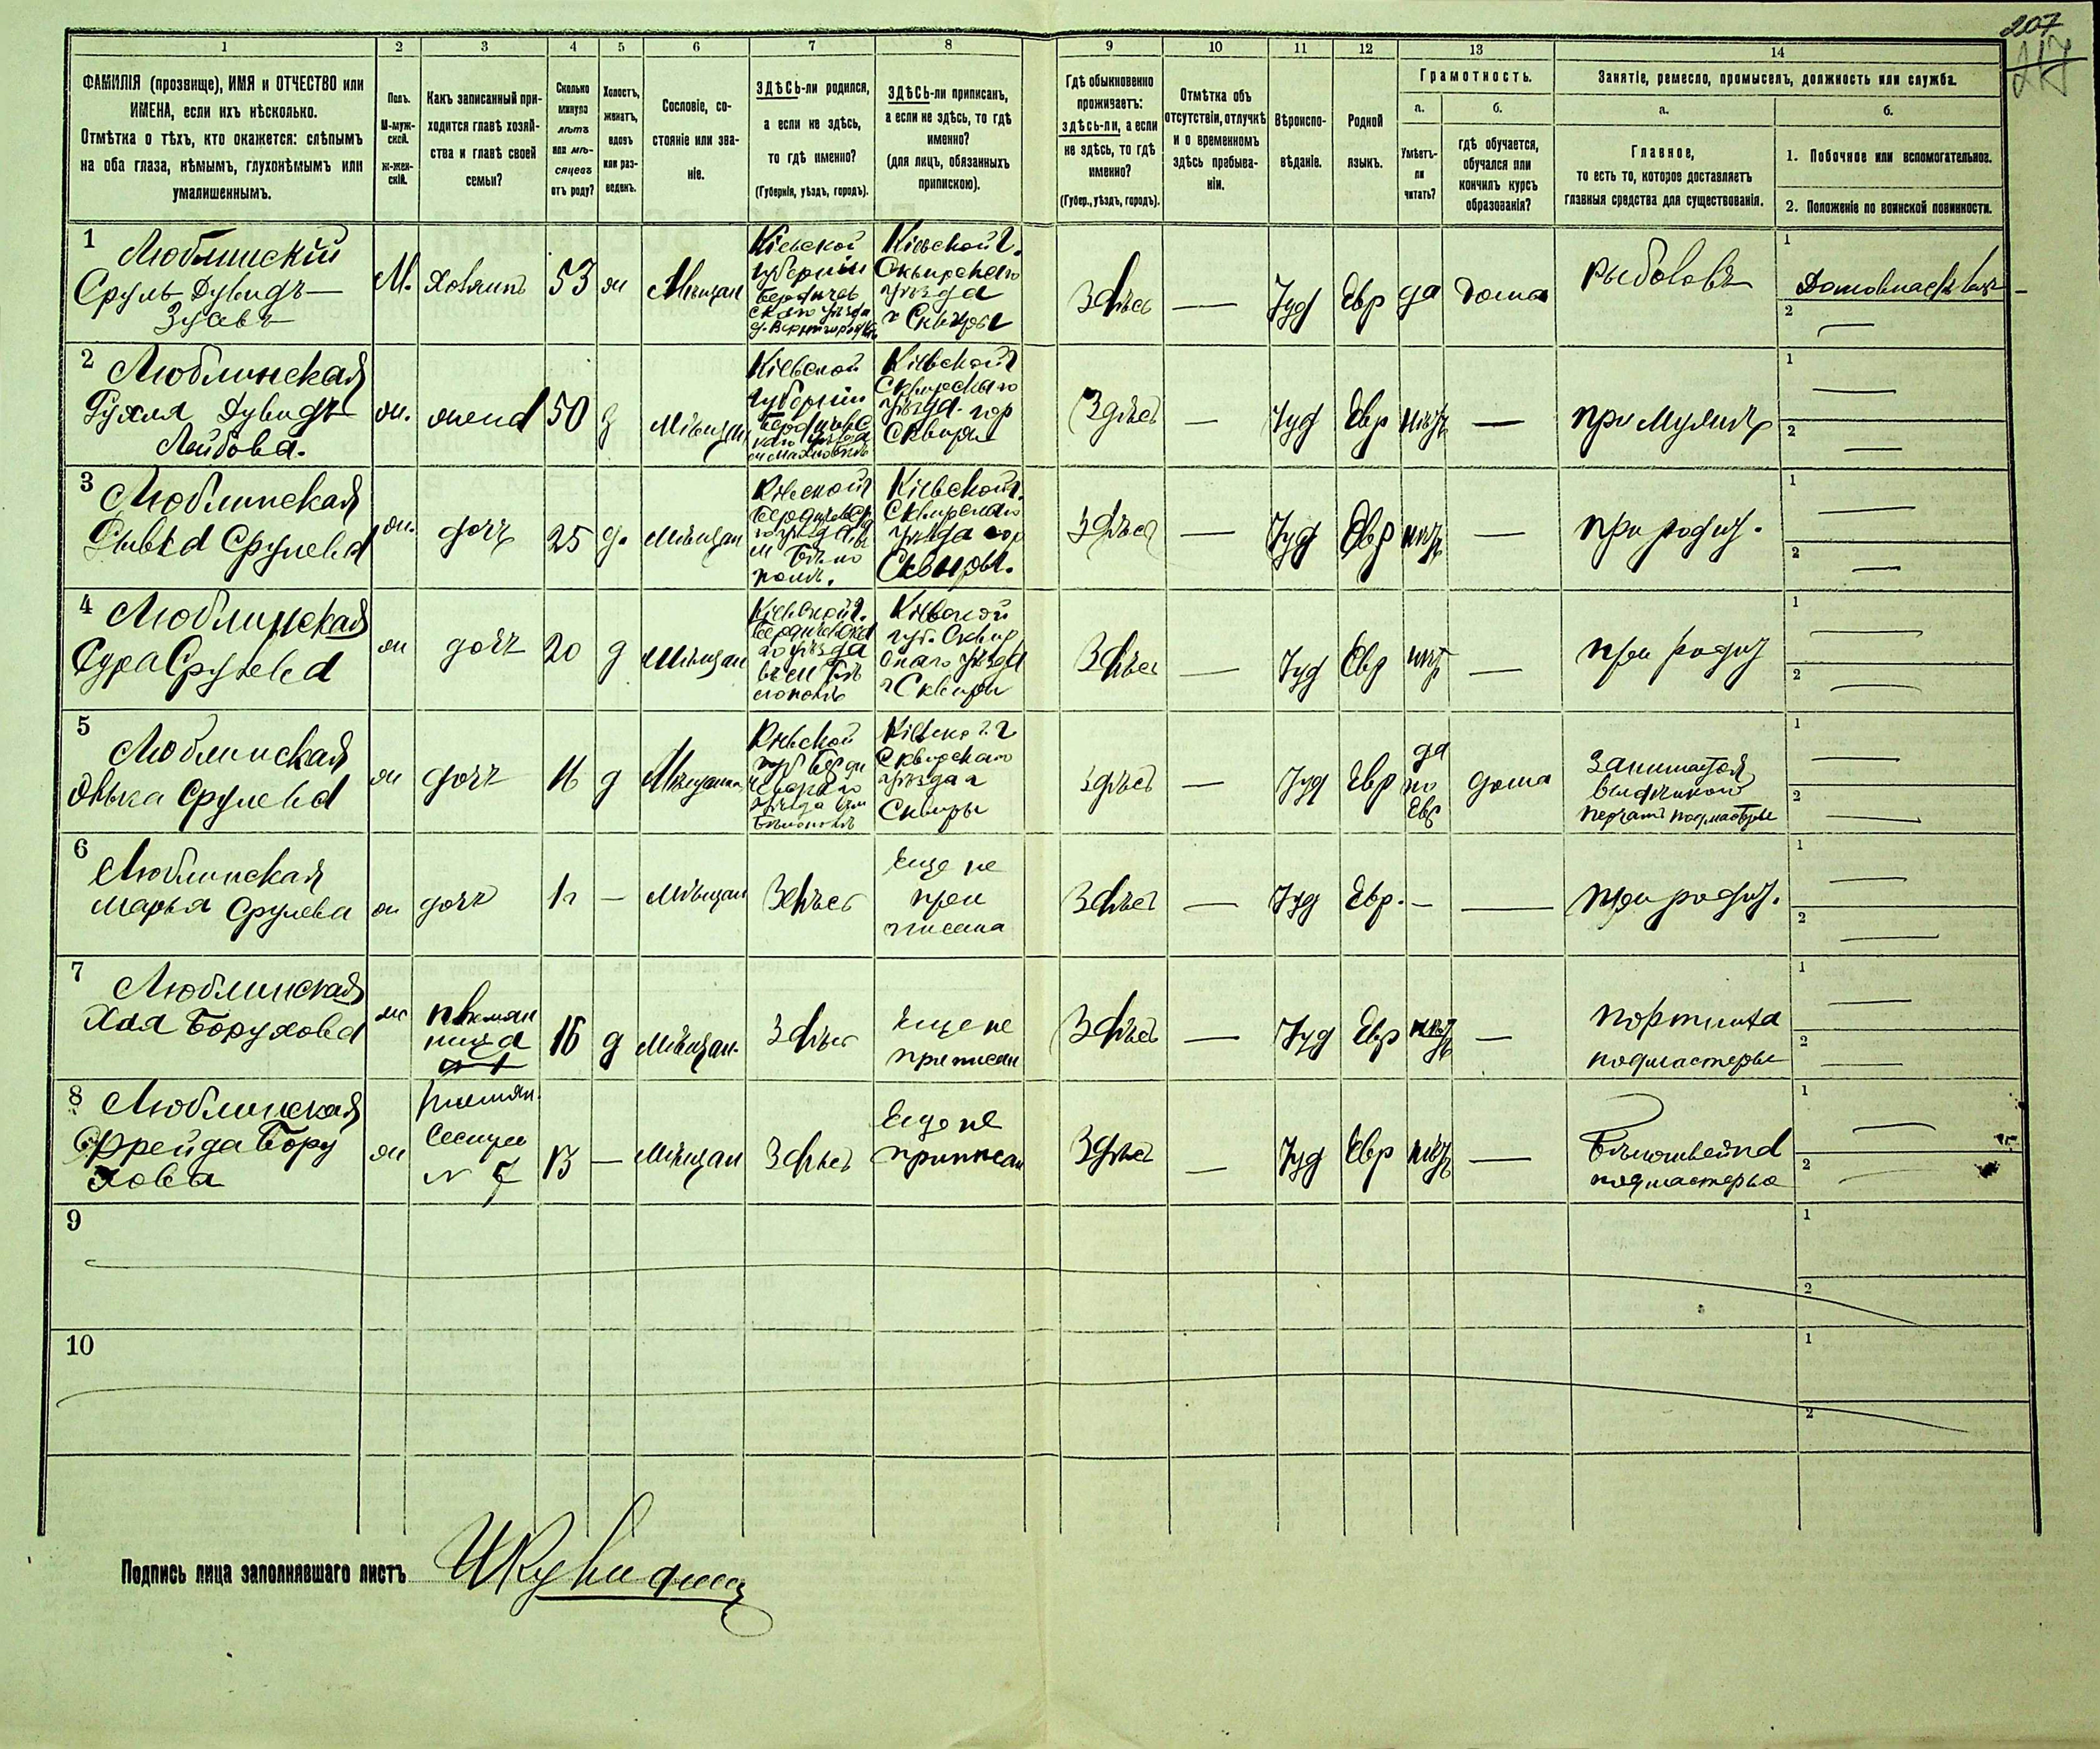 207
217
1
2
3
4
5
6
7
8
9
10
11
12
13
14
ФАМИЛІЯ (прозвище), ИМЯ и ОТЧЕСТВО или
ИМЕНА, если ихъ нѣсколько.
Отмѣтка о тѣхъ, кто окажется: слѣпымъ
на оба глаза, нѣмымъ, глухонѣмымъ или
умалишеннымъ.
Полъ.
М-муж-
ской.
ж-жен-
скій.
Какъ записанный при-
ходится главѣ хозяй-
ства и главѣ своей
семьи?
Сколько
минуло
лѣтъ
или мѣ-
сяцевъ
отъ роду?
Холостъ,
женатъ,
вдовъ
или раз-
веденъ.
Сословіе, со-
стояніе или зва-
ніе.
ЗДѢСЬ-ли родился,
а если не здѣсь,
то гдѣ именно?
(Губернія, уѣздъ, городъ).
ЗДѢСЬ-ли приписанъ,
а если не здѣсь, то гдѣ
именно?
(для лицъ, обязанныхъ
припискою).
Гдѣ обыкновенно
проживаетъ:
здѣсь-ли, а если
не здѣсь, то гдѣ
именно?
(Губер., уѣздъ, городъ).
Отмѣтка объ
отсутствіи, отлучкѣ
и о временномъ
здѣсь пребыва-
ніи.
Вѣроиспо-
вѣданіе.
Родной
языкъ.
Грамотность.
а.
Умѣетъ-
ли
читать?
б.
гдѣ обучается,
обучался или
кончилъ курсъ
образованія?
Занятіе, ремесло, промыселъ, должность или служба.
а.
Главное,
то есть то, которое доставляетъ
главныя средства для существованія.
б.
1. Побочное или вспомогательное.
2. Положеніе по воинской повинности.
1
Люблинскій
Сруль Дувидъ
М.
Хозяинъ
53
ж
Мѣщан
Кіевской
губерніи
Бердичев
скаго уѣзда
Кіевской г.
Сквирскаго
уѣзда
г Сквиры
Здѣсь
Іуд
Евр
да
дома
рыболовъ
1
2
2
Люблинская
Рухля Дувидъ
Лейбова.
ж.
жена
50
з
Мѣщан
Кіевской
губерніи
Кіевской г
Сквирскаго
уѣзда гор
Сквиры
Здѣсь
Іуд
Евр
нѣтъ
при мужѣ
1
2
3
Люблинская
Срулева
ж.
дочь
25
д.
Мѣщан
Кіевской г
Кіевской г.
Сквирскаго
уѣзда гор
Сквиры.
Здѣсь
Іуд
Евр
нѣтъ
при родит.
1
2
4
Люблинская
Сура Срулева
ж
дочь
20
д
Мѣщан
Кіевской г.
Кіевской
губ. Сквир
скаго уѣзда
г Сквиры
Здѣсь
Іуд
Евр
нѣт
при родит
1
2
5
Люблинская
Срулева
ж
дочь
16
д
Мѣщан
Кіевской
Сквирскаго
уѣзда г
Сквиры
здѣсь
Іуд
Евр
да
по
Евр
дома
Занимается
подмастерье
1
2
6
Люблинская
Марья Срулева
ж
дочь
Мѣщан
Здѣсь
Еще не
при
писана
Здѣсь
Іуд
Евр.
при родит.
1
2
7
Люблинская
Хая Борухова
ж
племян
ница
16
д
Мѣщан
Здѣсь
Еще не
приписан
Здѣсь
Іуд
Евр
нѣт
портниха
подмастерье
1
2
8
Люблинская
Фрейда Бору
хова
ж
племян.
Сестра
N 7
13
Мѣщан
Здѣсь
Еще не
приписан
Здѣсь
Іуд
Евр
нѣтъ
Бѣлошвейка
подмастерье
1
2
9
1
2
10
1
2
Подпись лица заполнявшаго листъ